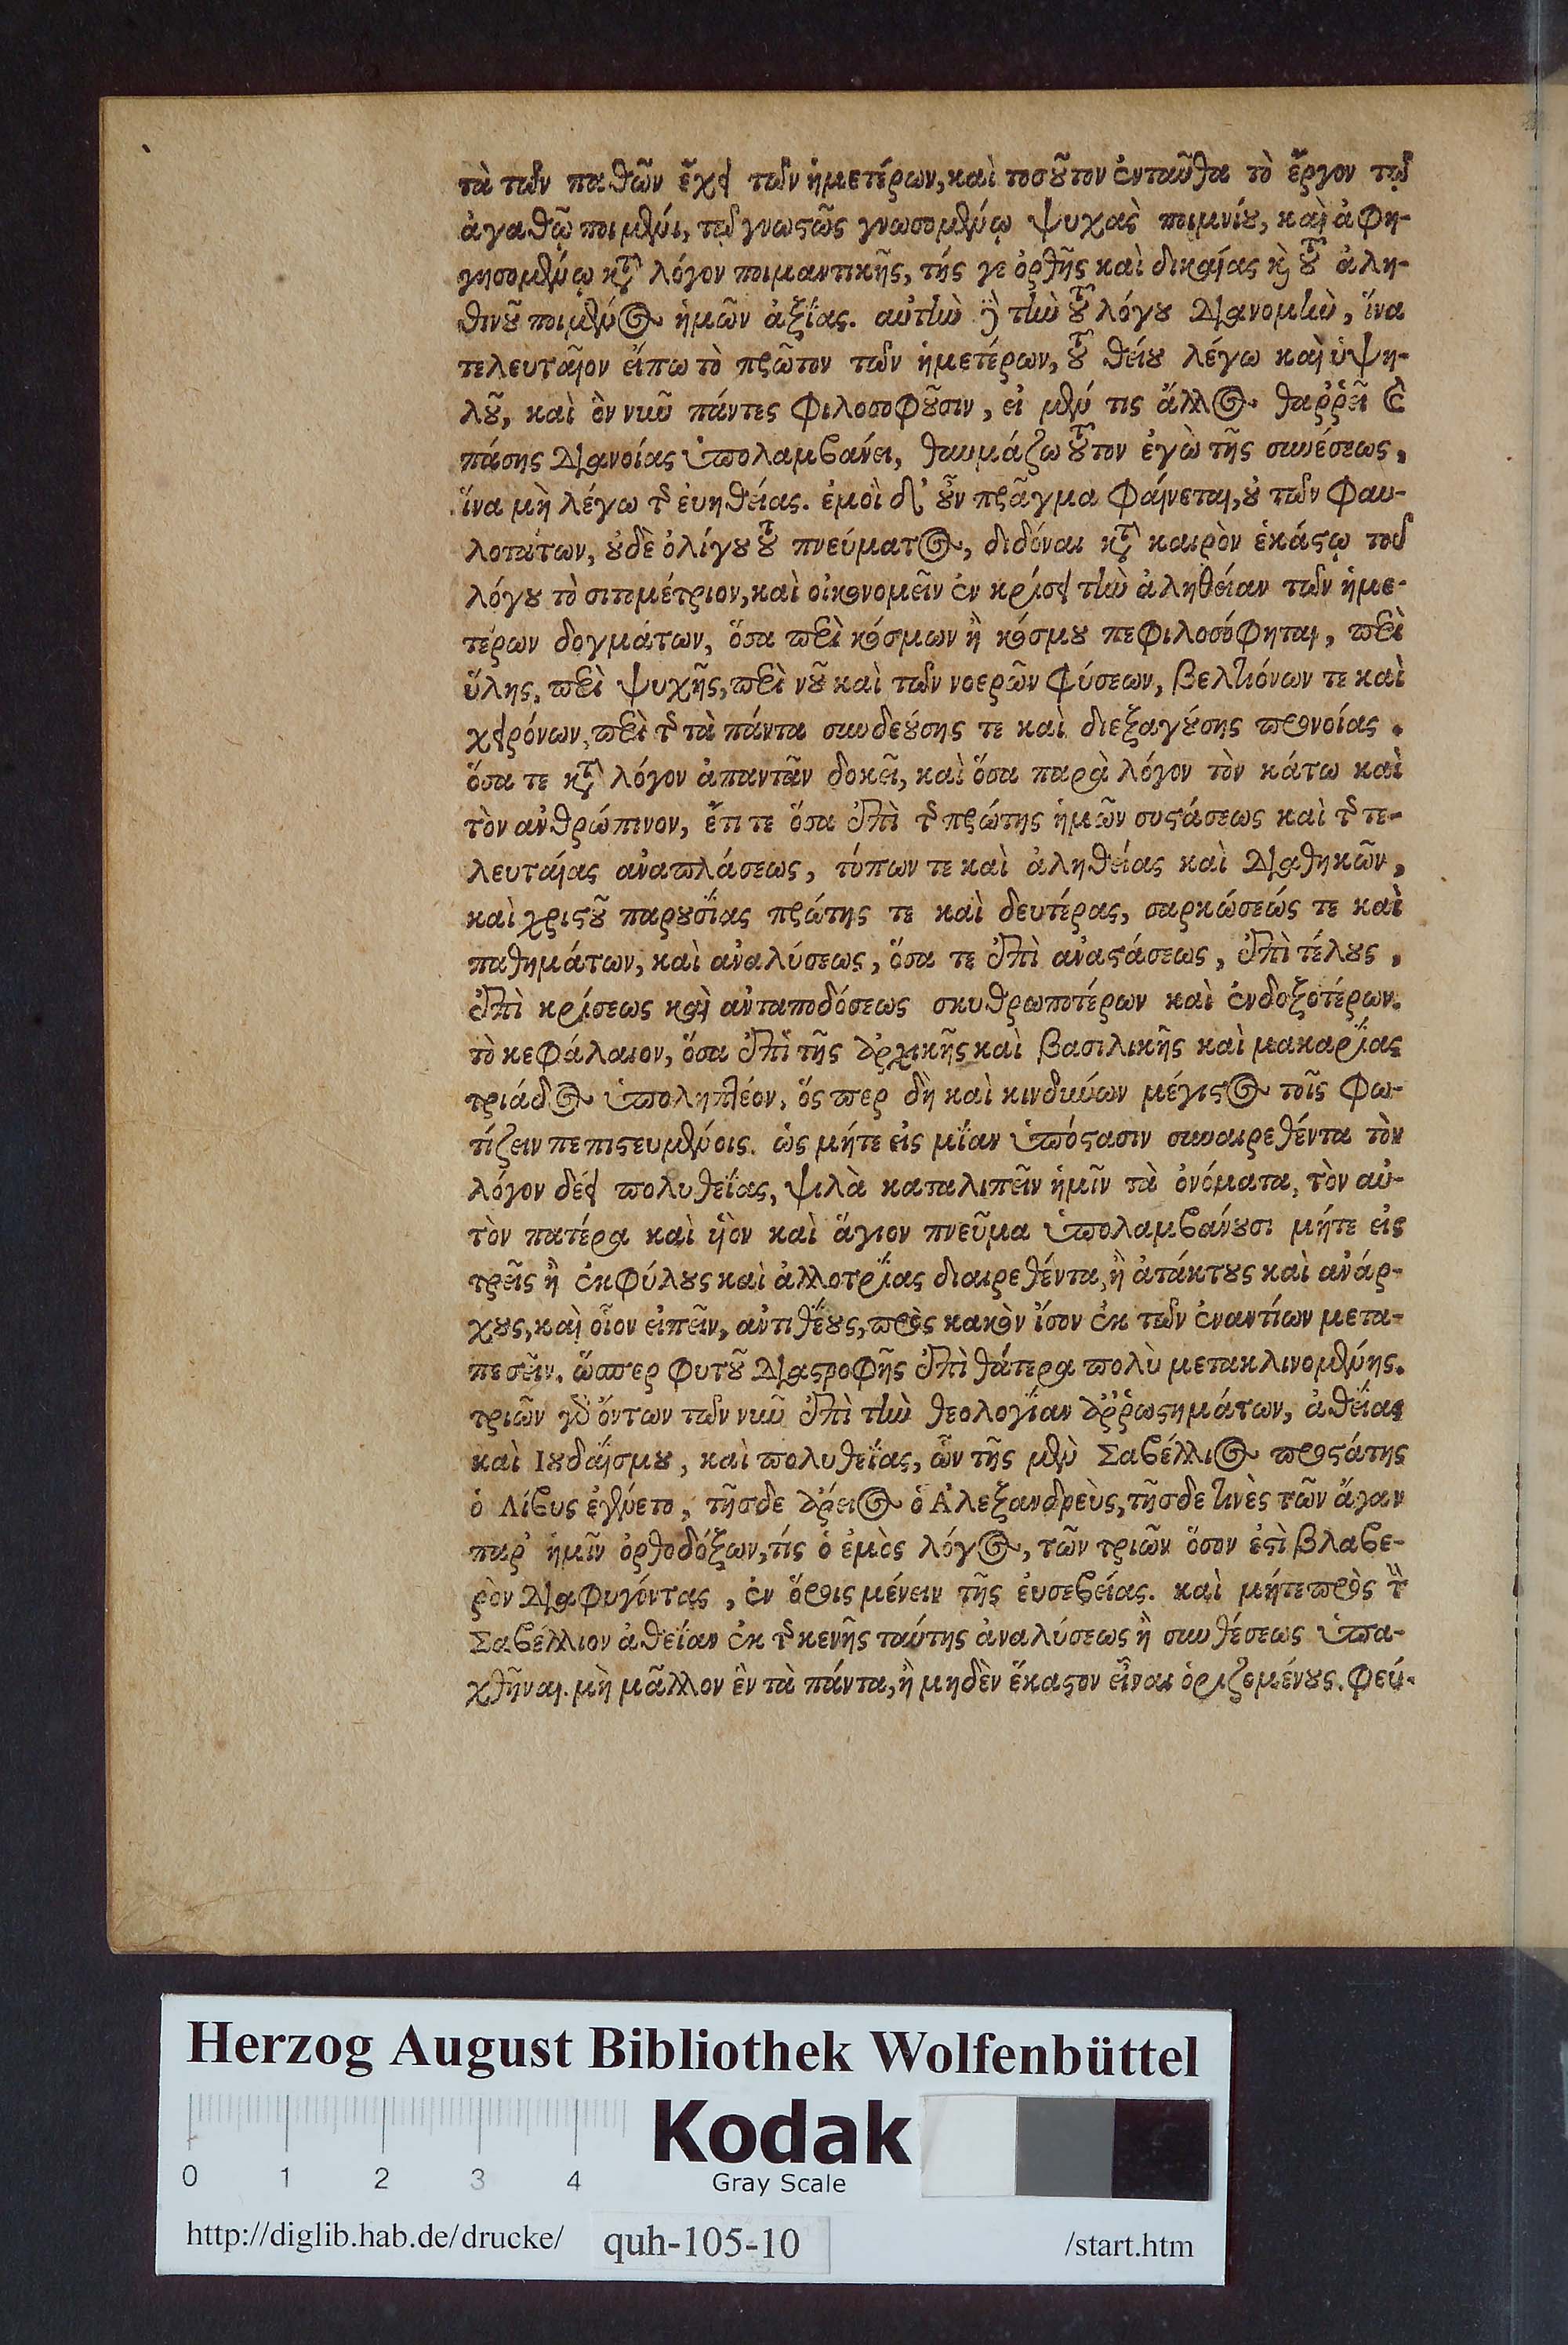 τὰ τῶν παθῶν ἔχει τῶν ἡμετέρων, καὶ τοσοῦτον ἐνταῦθα τὸ ἔργον τῷ
ἀγαθῷ ποιμένι, τῷ γνωστῶς γνωσομένῳ ψυχὰς ποιμνίου, καὶ ἀφη-
γησομένῳ κατὰ λόγον ποιμαντικῆς, τῆς γε ὀρθῆς καὶ δικαίας καὶ τοῦ ἀλη-
θινοῦ ποιμένος ἡμῶν ἀξίας. αὐτὴν δὲ τὴν τοῦ λόγου διανομὴν, ἵνα
τελευταῖον εἴπω τὸ πρῶτον τῶν ἡμετέρων, τοῦ θείου λέγω καὶ ὑψη-
λοῦ, καὶ ὃν νῦν πάντες φιλοσοφοῦσιν, εἰ μέν τις ἄλλος θαῤῥεῖ καὶ
πάσης διανοίας ὑπολαμβάνει, θαυμάζω τοῦτον ἐγὼ τῆς συνέσεως,
ἵνα μὴ λέγω τῆς εὐηθείας. ἐμοὶ δ' οὖν πρᾶγμα φαίνεται, οὐ τῶν φαυ-
λοτάτων, οὐδὲ ὀλίγου τοῦ πνεύματος, διδόναι κατὰ καιρὸν ἑκάστῳ τοῦ
λόγου τὸ σιτομέτριον, καὶ οἰκονομεῖν ἐν κρίσει τὴν ἀλήθειαν τῶν ἡμε-
τέρων δογμάτων, ὅσα περὶ κόσμων ἢ κόσμου πεφιλοσόφηται, περὶ
ὕλης, περὶ ψυχῆς, περὶ νοῦ καὶ τῶν νοερῶν φύσεων, βελτιόνων τε καὶ
χειρόνων, περὶ τῆς τὰ πάντα συνδεούσης τε καὶ διεξαγούσης προνοίας.
ὅσα τε κατὰ λόγον ἀπαντᾶν δοκεῖ, καὶ ὅσα παρὰ λόγον τὸν κάτω καὶ
τὸν ἀνθρώπινον, ἔτι τε ὅσα ἐπὶ τῆς πρώτης ἡμῶν συστάσεως καὶ τῆς τε-
λευταίας ἀναπλάσεως, τύπων τε καὶ ἀληθείας καὶ διαθηκῶν,
καὶ χριστοῦ παρουσίας πρώτης τε καὶ δευτέρας, σαρκώσεώς τε καὶ
παθημάτων, καὶ ἀναλύσεως, ὅσα τε ἐπὶ ἀναστάσεως, ἐπὶ τέλους,
ἐπὶ κρίσεως καὶ ἀνταποδόσεως σκυθρωποτέρων καὶ ἐνδοξοτέρων.
τὸ κεφάλαιον, ὅσα ἐπὶ τῆς ἀρχικῆς καὶ βασιλικῆς καὶ μακαρίας
τριάδος ὑποληπτέον, ὅς περ δὴ καὶ κινδύνων μέγιστος τοῖς φω-
τίζειν πεπιστευμένοις. ὡς μήτε εἰς μίαν ὑπόστασιν συναιρεθέντα τὸν
λόγον δέει πολυθεΐας, ψιλὰ καταλιπεῖν ἡμῖν τὰ ὀνόματα, τὸν αὐ-
τὸν πατέρα καὶ υἱὸν καὶ ἅγιον πνεῦμα ὑπολαμβάνουσι μήτε εἰς
τρεῖς ἢ ἐκφύλους καὶ ἀλλοτρίας διαιρεθέντα, ἢ ἀτάκτους καὶ ἀνάρ-
χους, καὶ οἷον εἰπεῖν, ἀντιθέους, πρὸς κακὸν ἴσον ἐκ τῶν ἐναντίων μετα-
πεσεῖν. ὥσπερ φυτοῦ διαστροφῆς ἐπὶ θάτερα πολὺ μετακλινομένης.
τριῶν γὰρ ὄντων τῶν νῦν ἐπὶ τὴν θεολογίαν ἀῤῥωστημάτων, ἀθεΐας
καὶ Ἰουδαΐσμου, καὶ πολυθεΐας, ὧν τῆς μὲν Σαβέλλιος προστάτης
ὁ Λίβυς ἐγένετο, τῆσδε ἄρειος ὁ Ἀλεξανδρεὺς, τῆσδε τινὲς τῶν ἄγαν
παρ' ἡμῖν ὀρθοδόξων, τίς ὁ ἐμὸς λόγος, τῶν τριῶν ὅσον ἐστὶ βλαβε-
ρὸν διαφυγόντας, ἐν ὅροις μένειν τῆς εὐσεβείας. καὶ μήτε πρὸς τὴν
Σαβέλλιον ἀθεΐαν ἐκ τῆς κενῆς ταύτης ἀναλύσεως ἢ συνθέσεως ὑπα-
χθῆναι. μὴ μᾶλλον ἓν τὰ πάντα, ἢ μηδὲν ἕκαστον εἶναι ὁριζομένους. φεύ-
Herzog August Bibliothek Wolfenbüttel
0 1 2 3 4
Kodak
Gray Scale
http://diglib.hab.de/drucke/ quh-105-10 /start.htm